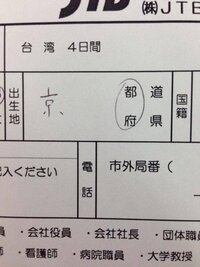 JTB (株)JTB
台湾 4日間
出生地 京 都道府県 国籍
記入ください 電話 市外局番(
・会社役員 ・会社社長 ・団体職員
・看護師 ・病院職員 ・大学教授